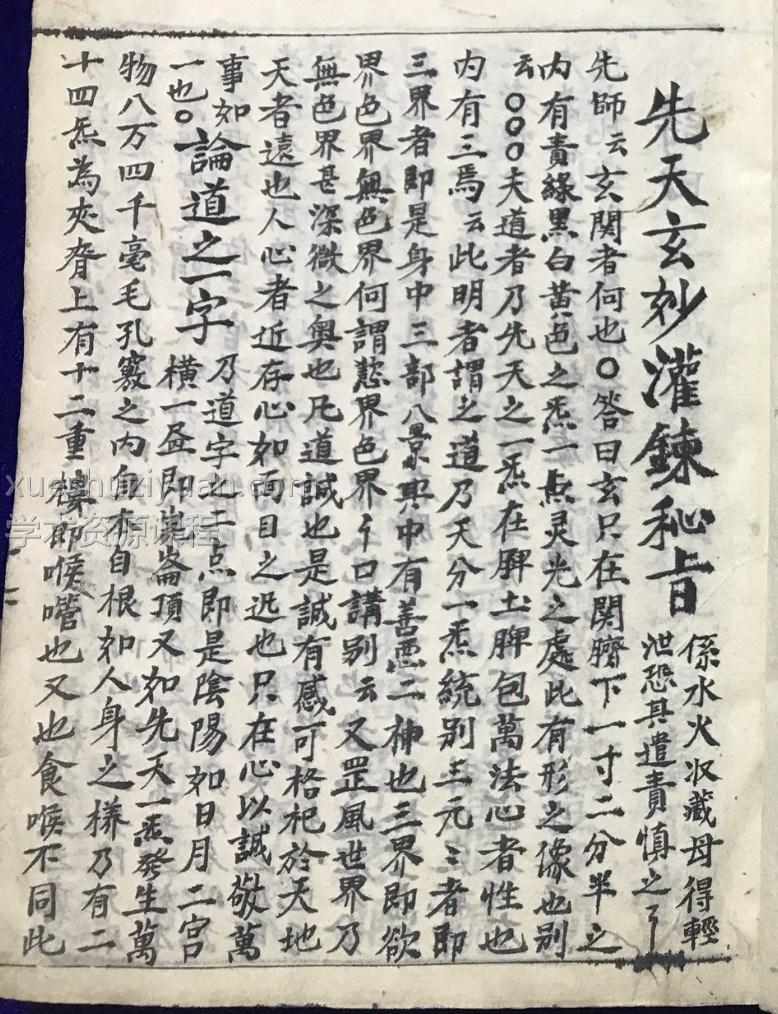 先天玄妙灌鍊秘旨
係水火収藏毋得輕
泄恐其遣責慎之
先師云玄関者何也○答曰玄只在関臍下一寸二分半之
内有青緑黒白黄色之炁一点灵光之處此有形之像也别
云○○○夫道者乃先天之一炁在脾土脾包萬法心者性也
内有三焉云此明者謂之道乃天分一炁統别三元〻者即
三界者即是身中三部八景與中有善悪二神也三界即欲
界色界無色界何謂慾界色界口講别云又罡風世界乃
無色界甚深微之奥也凡道誠也是誠有感可格祀於天地
天者遠也人心者近存心如面目之迟也只在心以誠敬萬
事如論道之一字乃道字之二点即是陰陽如日月二宫
一也○横一畫即崑崙頂又如先天一炁發生萬
物八万四千毫毛孔竅之内自本自根如人身之樣乃有二
十四炁為夾脊上有十二重樓即喉嚨也又也食喉不同此
xueshuziyuan.com
学术资源课程